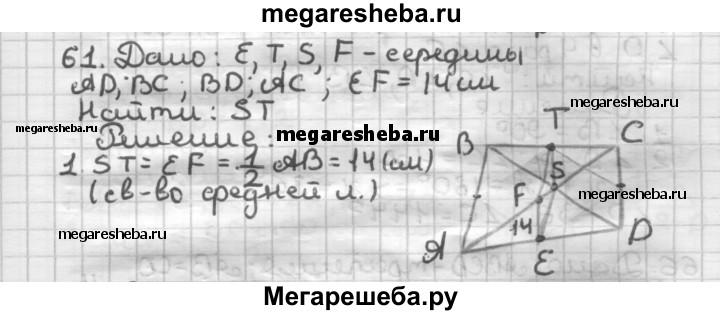 megaresheba.ru
61. Дано: E, T, S, F - середины
AD; BC; BD; AC; EF = 14 см
Найти: ST
Решение:
1. ST = EF = 1/2 AB = 14 (см)
(св-во средней л.)
megaresheba.ru
megaresheba.ru
megaresheba.ru
megaresheba.ru
megaresheba.ru
B T C
S
F
14
A E D
Мегарешеба.ру